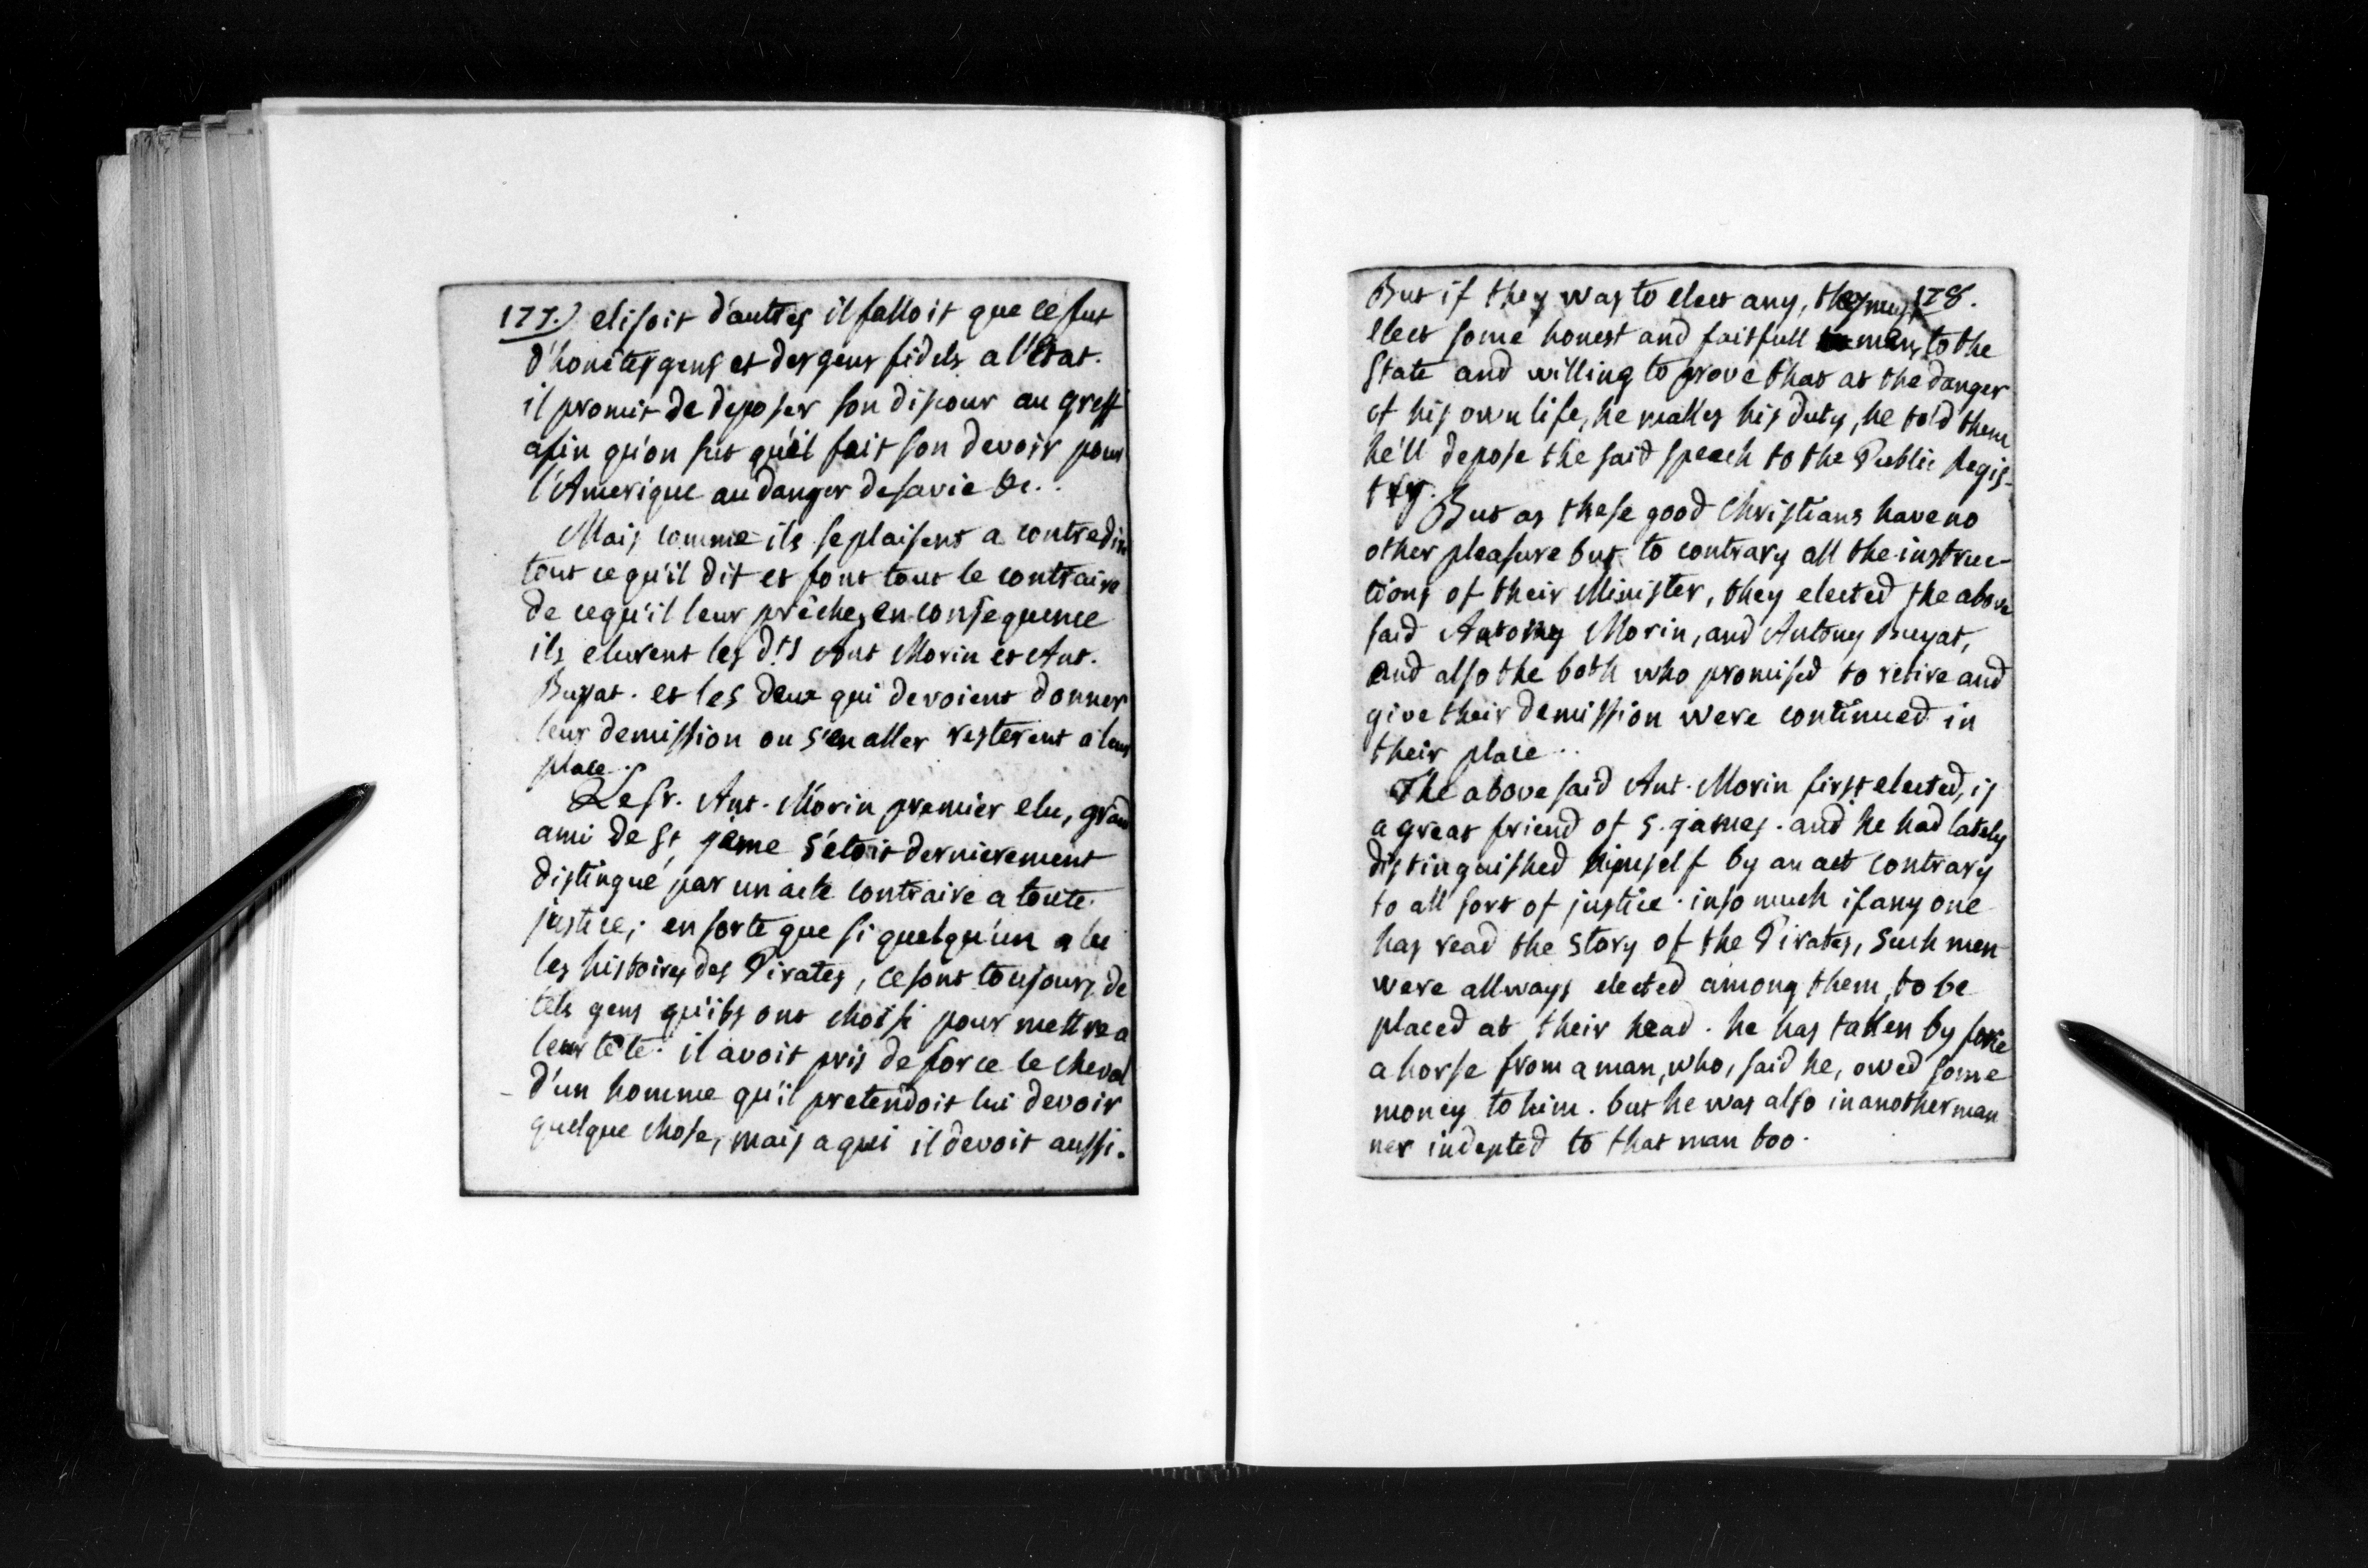 177.) elisoit d'autres il falloit que ce fut
d'honêtes gens et des gens fidels a l'Etat.
il promit de deposer son discour au greff
afin qu'on sut qu'il fait son devoir pour
l'Amerique au danger de sa vie &c..
Mais comme ils se plaisent a contredire
tout ce qu'il dit et font tout le contraire
de ce qu'il leur prêche, en consequence
ils elurent les d.ts Ant Morin et Ant.
Buyat. et les deux qui devoient donner
leur demission ou s'en aller resterent a leur
place.
Le sr. Ant. Morin premier elu, grand
ami de St jème s'étoit dernierement
distingué par un acte contraire a toute
justice; en sorte que si quelqu'un a lu
les histoires des Pirates, ce sont toujours de
tels gens qu'ils ont choisi pour mettre a
leur tête. il avoit pris de force le cheval
d'un homme qu'il pretendoit lui devoir
quelque chose, mais a qui il devoit aussi.
But if they was to elect any, they must 178.
elect some honest and faitfull men, to the
State and willing to prove that at the danger
of his own life, he makes his duty, he told them
he'll depose the said speech to the Public Regis-
try.
But as these good Christians have no
other pleasure but to contrary all the instruc-
tions of their Minister, they elected the above
said Antony Morin, and Antony Buyat,
and also the both who promised to retire and
give their demission were continued in
their place..
The above said Ant. Morin first elected, is
a great friend of S. james. and he had lately
distinguished himself by an act contrary
to all sort of justice. in so much if any one
has read the story of the Pirates, such men
were allways elected among them, to be
placed at their head. he has taken by force
a horse from a man, who, said he, owed some
money to him. but he was also in another man
ner indepted to that man too.